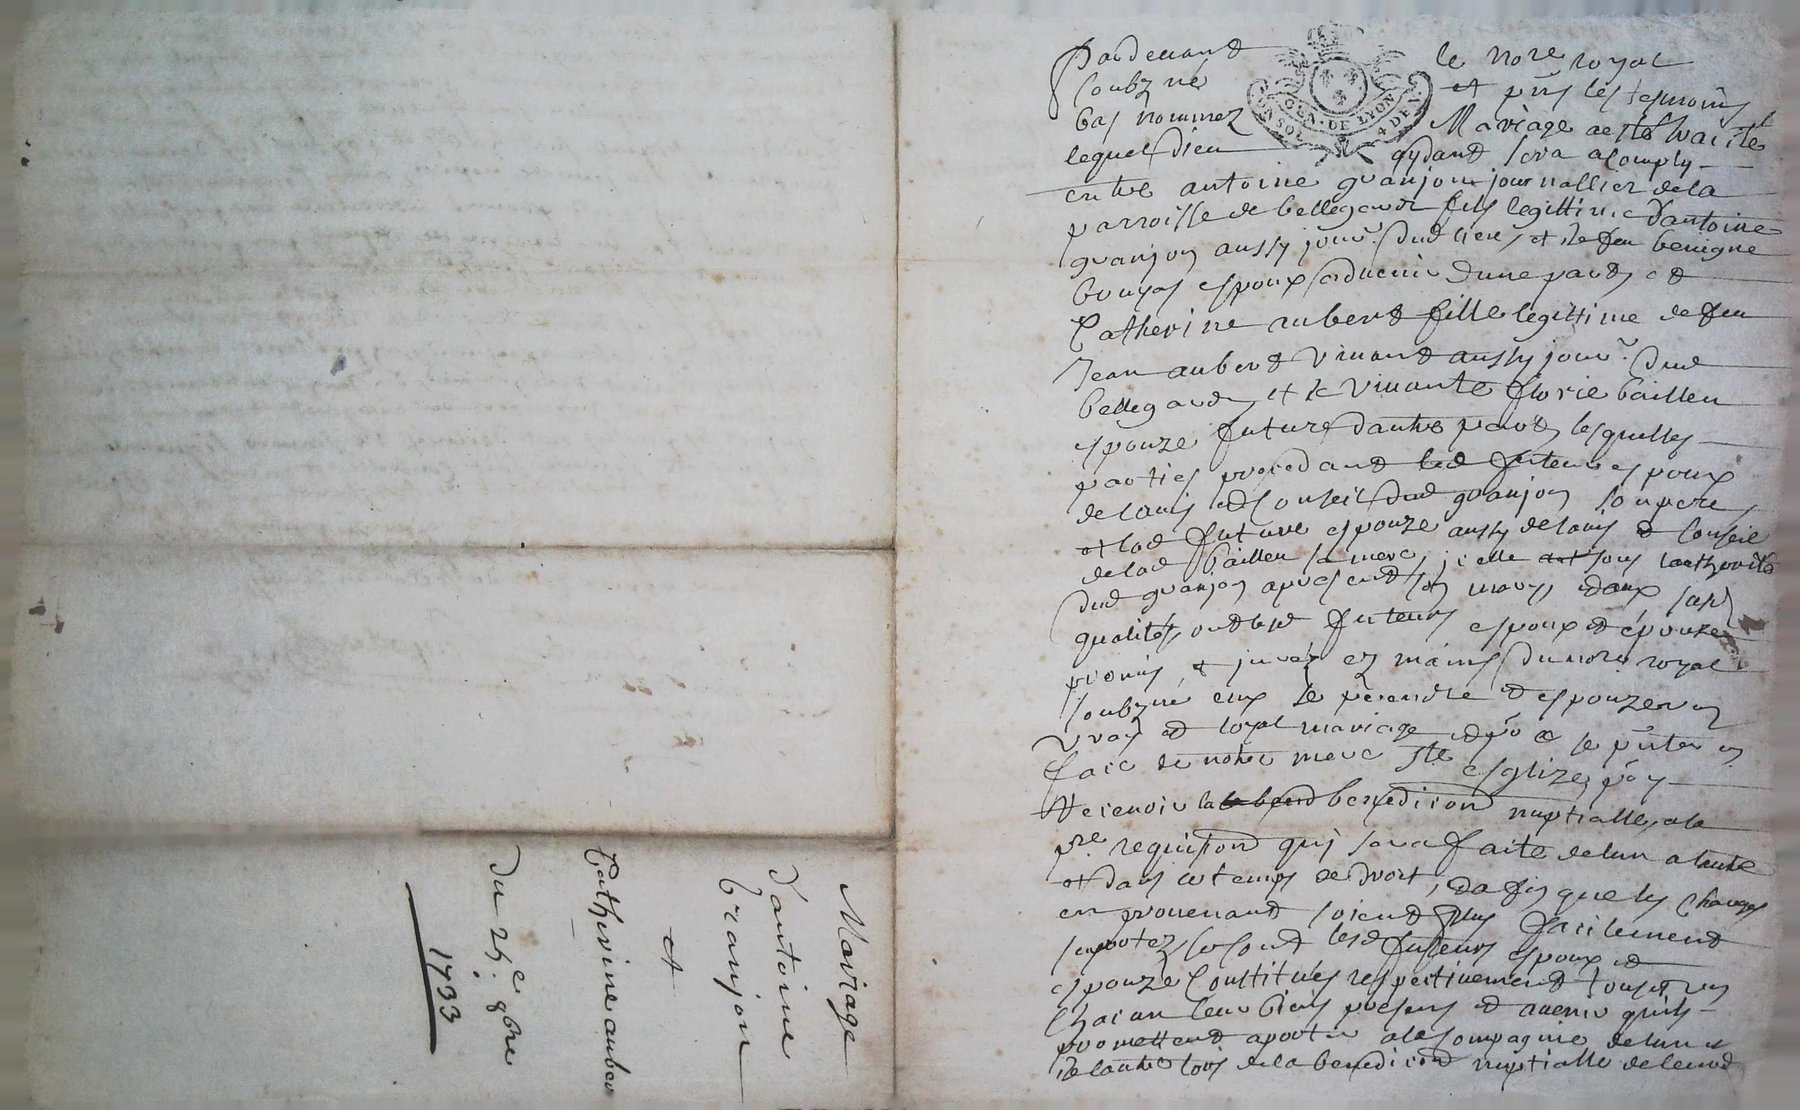 Pardevant le nore royal
soubzné et pnts les tesmoins
bas nommez Mariage a esté traicté
lequel dieu aydant sera acomply
GEN. DE LYON
UN SOL 4 DEN.
entre antoine granjon journallier de la
parroisse de bellegarde fils legittime d'antoine
granjon aussy jour. dud lieu et de feu benigne
espoux advenir dune part et
Catherine aubert fille legittime de feu
Jean aubert vivant aussy jour. dud
bellegarde et de vivante florie pailleu
espouze future dautre part lesquelles
parties procedant led futeur espoux
de lavis et conseil dud granjon son pere
et lad future espouze aussy de lavis et conseil
de lad pailleu sa mere, icelle sous lauthorité
dud granjon apresent son mary, et aux sasd
qualités ont lesd futeurs espoux et epouze
promis et jurés ez mains du nore royal
soubzné eux se prendre et espouzer en
vray et loyal mariage et po ce se pnter en
face de notre mere Ste esglize, po y
Recevoir la benediction nuptialle, a la
pre requisition quy sera faite de lun a lautre
et dans le temps de droit, et afin que les charges
en provenant soient plus facilement
suportez se sont lesd futeurs espoux et
espouze constitués respectivement tous et un
chacun leur biens presens et avenir quils
promettent aporter a la compagnie de lun et
de lautre lors de la benediction nuptialle de leurd
Mariage
d'antoine
Granjon
et
Catherine auber
du 25.e 9bre
1733